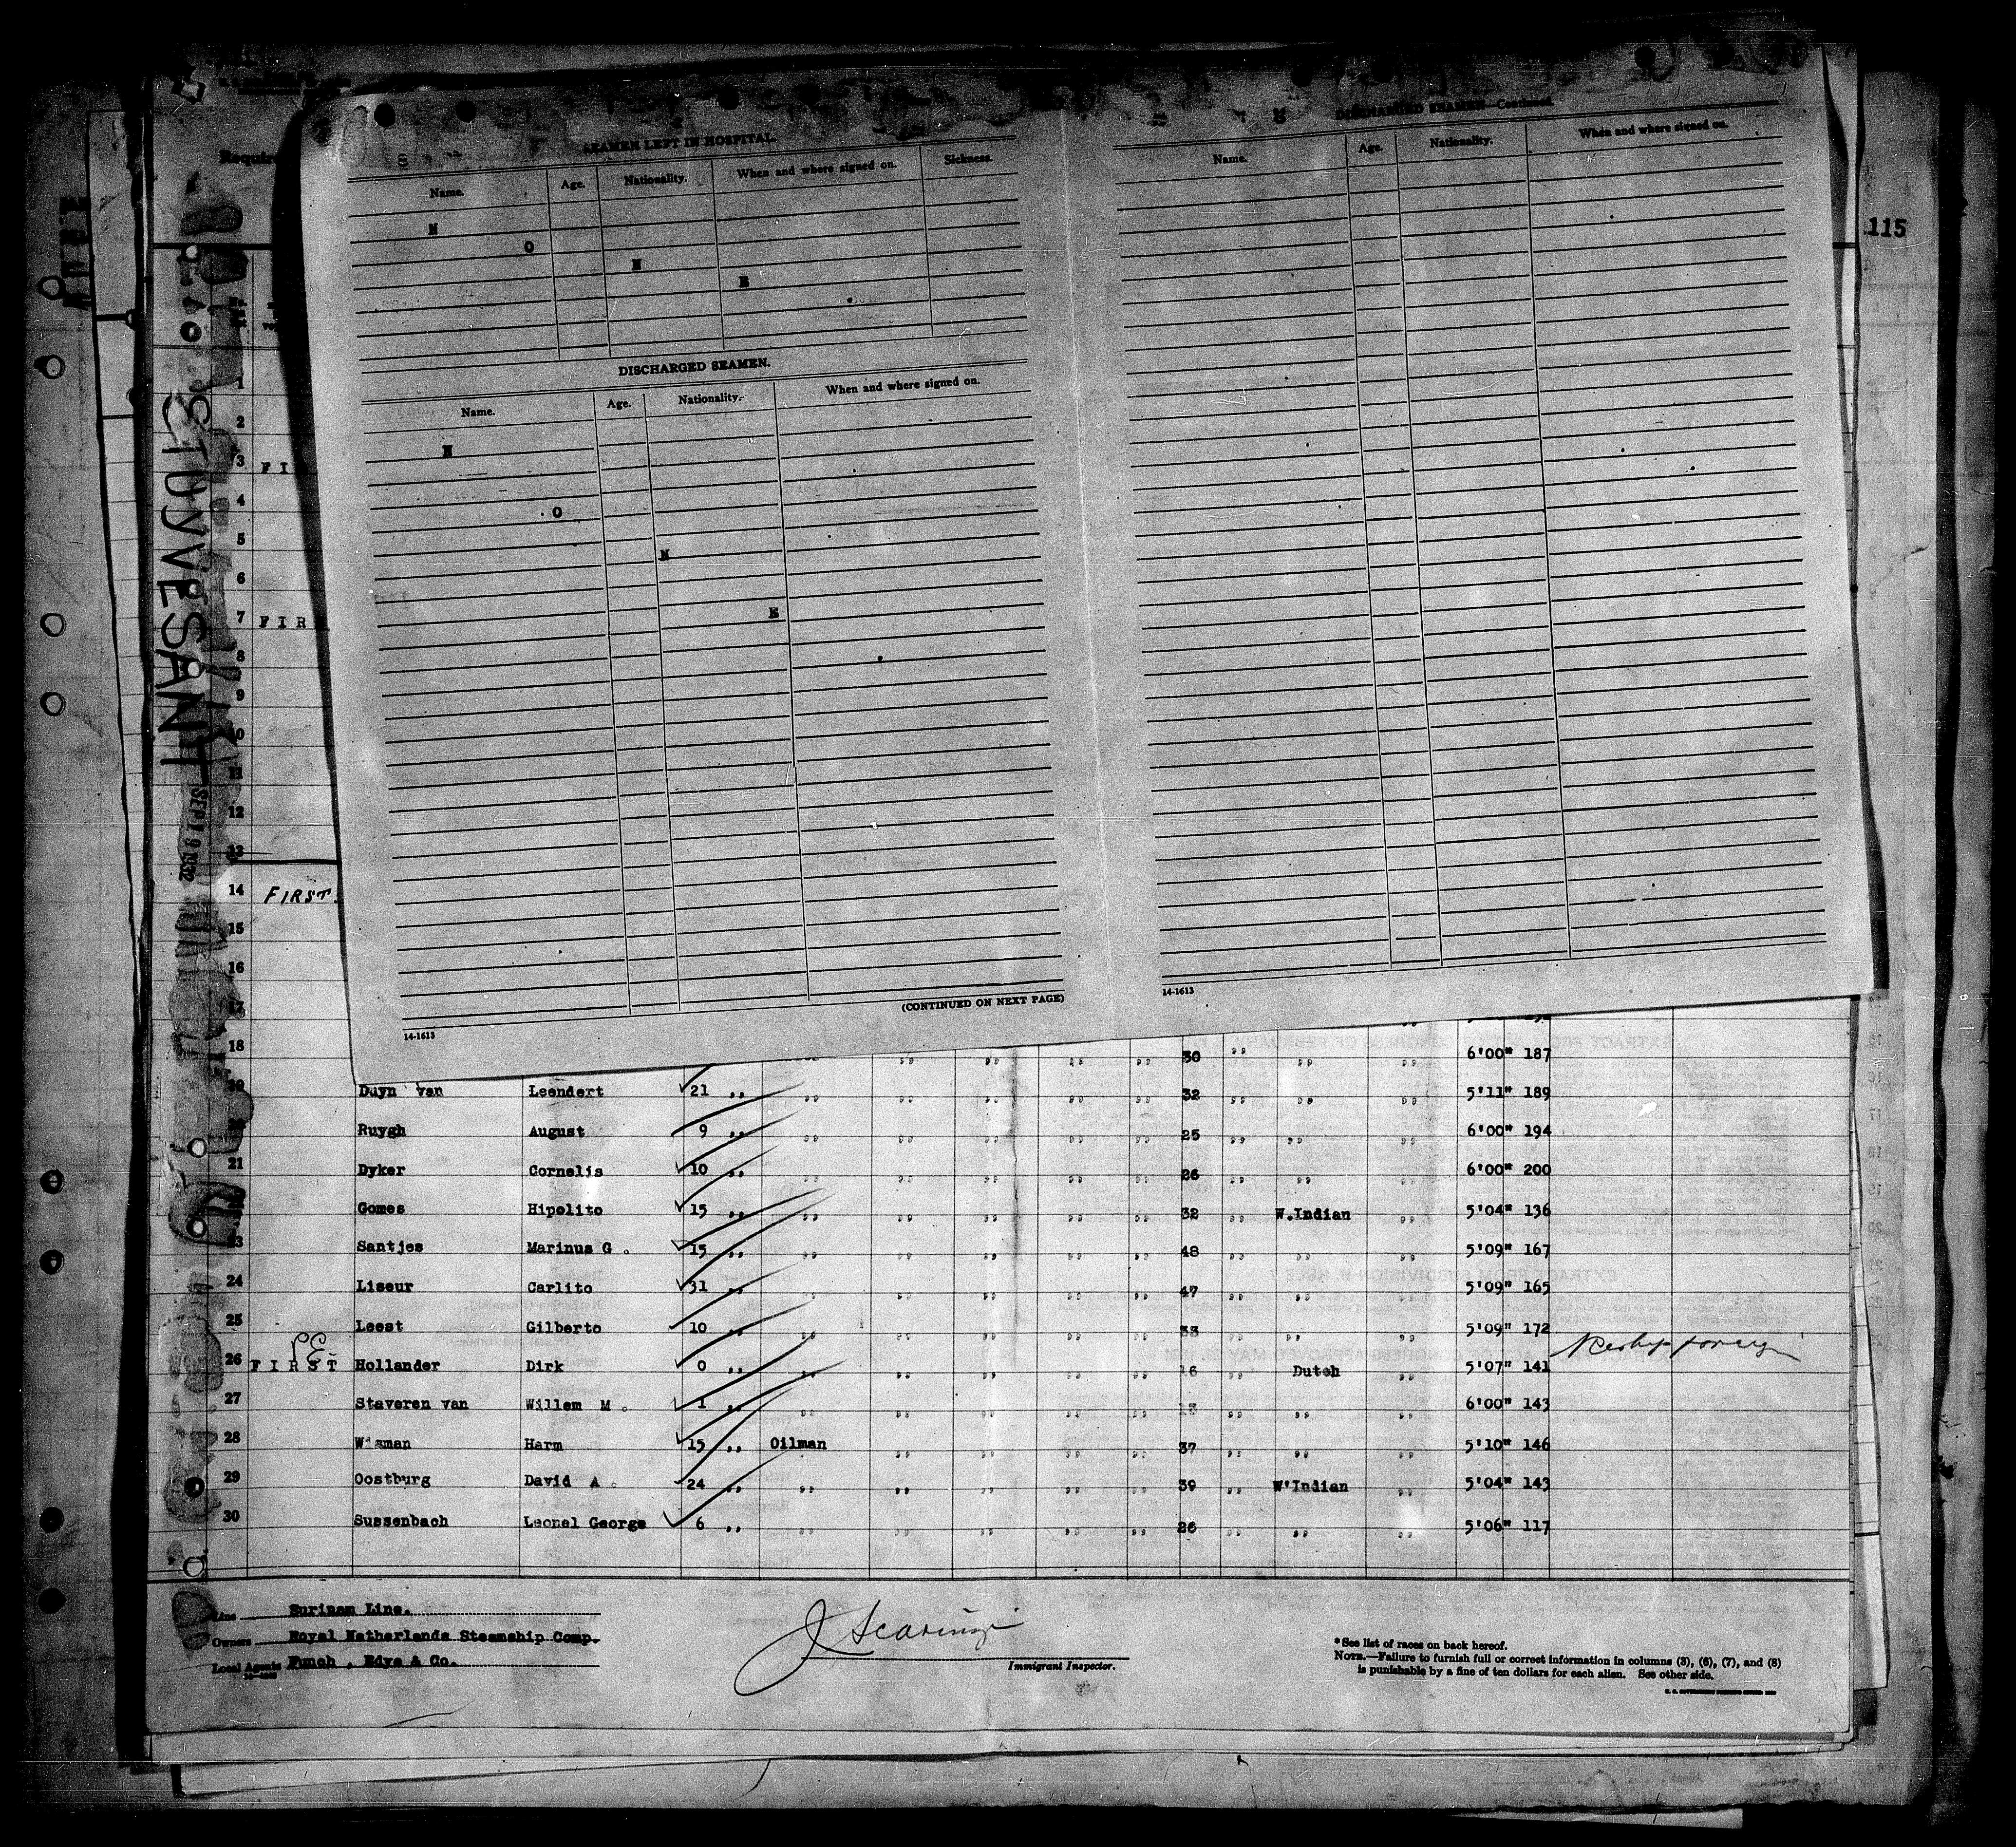 115
STUYVESANT
SEP 19 1932
SEAMEN LEFT IN HOSPITAL.
Name. Age. Nationality. When and where signed on. Sickness.
N
O
N
E
DISCHARGED SEAMEN.
Name. Age. Nationality. When and where signed on.
N
O
N
E
(CONTINUED ON NEXT PAGE)
14-1613
DISCHARGED SEAMEN—Continued
Name. Age. Nationality. When and where signed on.
14-1613
1
2
3 F I
4
5
6
7 F I R
8
9
10
11
12
13
14 FIRST
15
16
17
18 30 ,, ,, ,, 6'00" 187
19 Duyn van Leendert 21 ,, ,, ,, ,, ,, ,, 32 ,, ,, ,, 5'11" 189
20 Ruygh August 9 ,, ,, ,, ,, ,, ,, 25 ,, ,, ,, 6'00" 194
21 Dyker Cornelis 10 ,, ,, ,, ,, ,, ,, 26 ,, ,, ,, 6'00" 200
22 Gomes Hipolito 15 ,, ,, ,, ,, ,, ,, 32 ,, W.Indian ,, 5'04" 136
23 Santjes Marinus G. 15 ,, ,, ,, ,, ,, ,, 48 ,, ,, ,, 5'09" 167
24 Liseur Carlito 31 ,, ,, ,, ,, ,, ,, 47 ,, ,, ,, 5'09" 165
25 Leest Gilberto 10 ,, ,, ,, ,, ,, ,, 33 ,, ,, ,, 5'09" 172
26 F I R S T Hollander Dirk 0 ,, ,, ,, ,, ,, ,, 16 ,, Dutch ,, 5'07" 141
27 Staveren van Willem M. 1 ,, ,, ,, ,, ,, ,, ,, ,, ,, 6'00" 143
28 Wisman Harm 15 ,, Oilman ,, ,, ,, ,, 37 ,, ,, ,, 5'10" 146
29 Oostburg David A. 24 ,, ,, ,, ,, ,, ,, 39 ,, W'Indian ,, 5'04" 143
30 Sussenbach Leonel George 6 ,, ,, ,, ,, ,, ,, 26 ,, ,, ,, 5'06" 117
Line Surinam Line.
Owners Royal Netherlands Steamship Comp.
Local Agents Funch, Edye & Co.
Immigrant Inspector.
*See list of races on back hereof.
NOTE.—Failure to furnish full or correct information in columns (3), (6), (7), and (8)
is punishable by a fine of ten dollars for each alien. See other side.